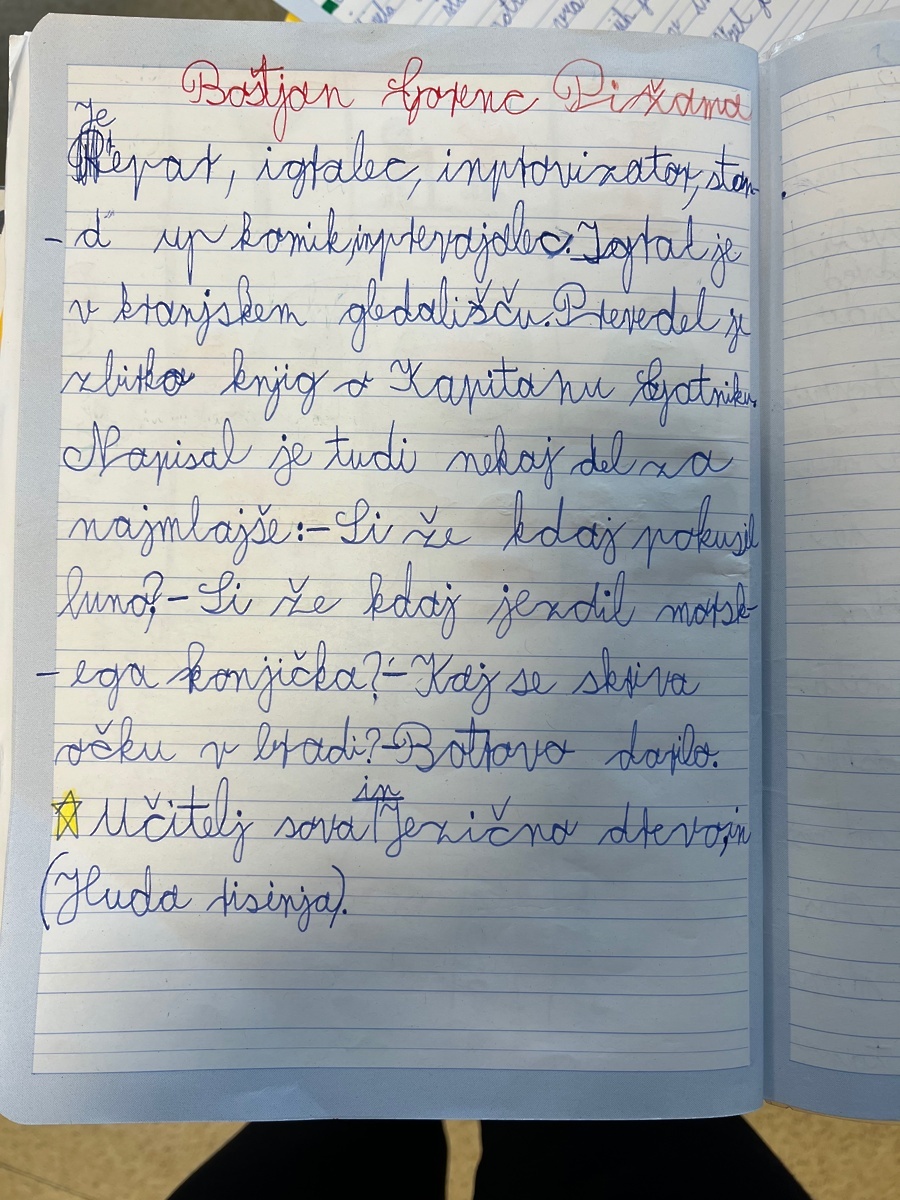 Boštjan Gorenc Pižama
Je
Repar, igralec, inprovizator, stan-
- d up komik, inprevajalec. Igral je
v kranjskem gledališču. Prevedel je
zbirko knjig o Kapitanu Gatniku.
Napisal je tudi nekaj del za
najmlajše: - Si že kdaj pokusil
luno? - Si že kdaj jezdil morsk-
- ega konjička? - Kaj se skriva
očku v bradi? - Botrovo darilo.
in
Učitelj sova Jezično drevo, in
(Huda pisinja).